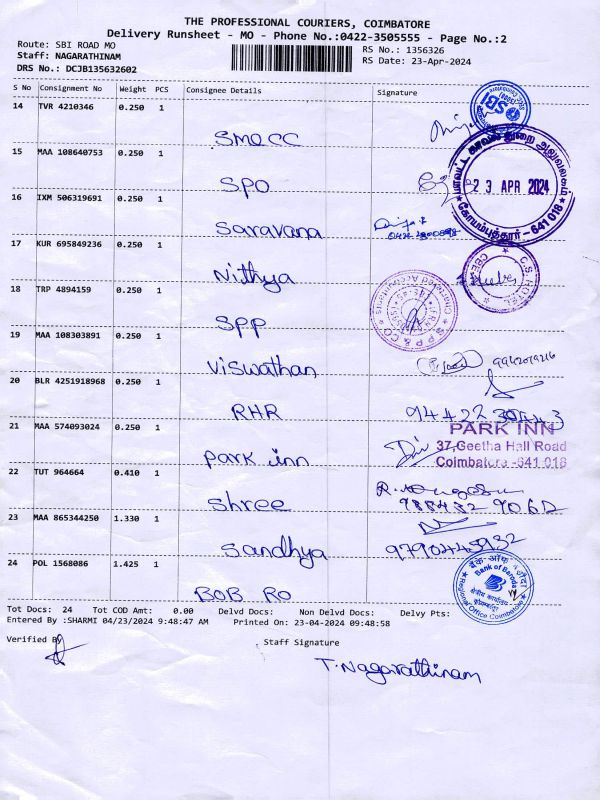 THE PROFESSIONAL COURIERS, COIMBATORE
Delivery Runsheet - MO - Phone No.:0422-3505555 - Page No.:2
Route: SBI ROAD MO
RS No.: 1356326
Staff: NAGARATHINAM
RS Date: 23-Apr-2024
DRS No.: DCJB135632602
S No Consignment No Weight PCS Consignee Details Signature
14 TVR 4210346 0.250 1
SBI
SMECC
15 MAA 108640753 0.250 1
SPO
23 APR 2024
கோயம்புத்தூர் - 641 018
16 IXM 506319691 0.250 1
Saravana
17 KUR 695849236 0.250 1
Nithya
18 TRP 4894159 0.250 1
SPP
SPP & CO
Chartered Accountants
19 MAA 108303891 0.250 1
Viswathan
9942019216
20 BLR 4251918968 0.250 1
RHR
21 MAA 574093024 0.250 1
PARK INN
37, Geetha Hall Road
Coimbatore -641 018
Park inn
22 TUT 964664 0.410 1
Shree
23 MAA 865344250 1.330 1
Sandhya
9790445932
24 POL 1568086 1.425 1
बैंक ऑफ़ बड़ौदा
Bank of Baroda
क्षेत्रीय कार्यालय
Regional Office Coimbatore
BOB RO
Tot Docs: 24 Tot COD Amt: 0.00 Delvd Docs: Non Delvd Docs: Delvy Pts:
Entered By :SHARMI 04/23/2024 9:48:47 AM Printed On: 23-04-2024 09:48:58
Verified By
Staff Signature
T. Nagarathinam